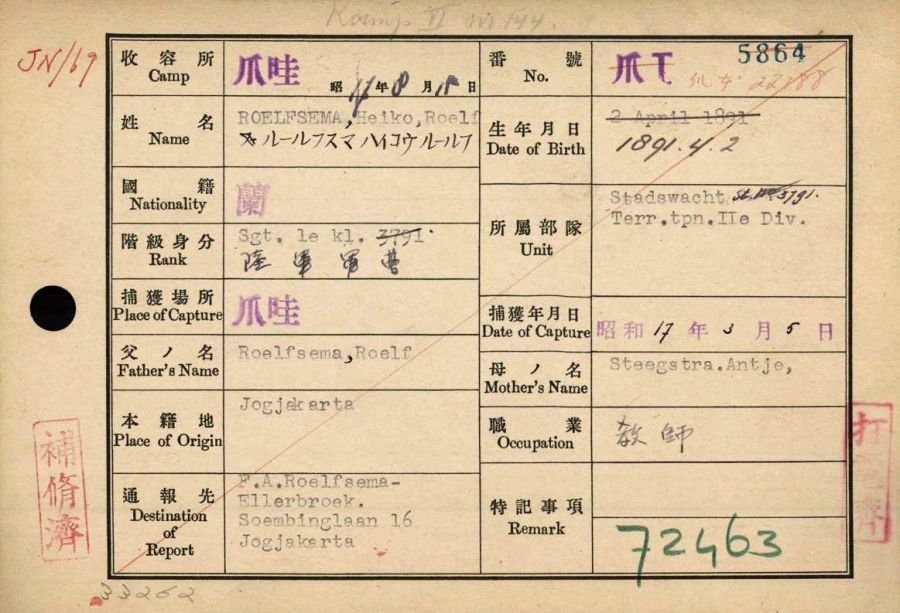 Kamp II nr 144.
JN/69
收容所
Camp
爪哇
昭17年8月15日
番號
No.
爪工
5864
22188
姓名
Name
ROELFSEMA, Heiko, Roelf
ルールフスマ ハイコウ ルールフ
生年月日
Date of Birth
2 April 1891
1891.4.2
國籍
Nationality
蘭
所屬部隊
Unit
Stadswacht St.No.3791.
Terr.tpn.IIe Div.
階級身分
Rank
Sgt. 1e kl. 3791.
陸軍軍曹
捕獲場所
Place of Capture
爪哇
捕獲年月日
Date of Capture
昭和17年3月5日
父ノ名
Father's Name
Roelfsema, Roelf
母ノ名
Mother's Name
Steegstra.Antje,
本籍地
Place of Origin
Jogjakarta
職業
Occupation
教師
通報先
Destination
of
Report
F.A.Roelfsema-
Ellerbroek.
Soembinglaan 16
Jogjakarta
特記事項
Remark
72463
補脩濟
打電濟
33262